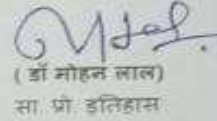 ( डॉ मोहन लाल)
सा. प्रो. इतिहास